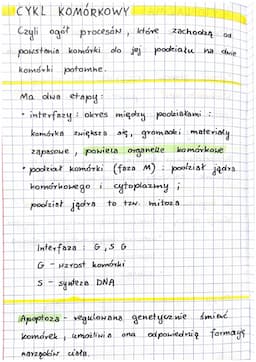 CYKL KOMÓRKOWY
Czyli ogół procesów, które zachodzą od
powstania komórki do jej podziału na dwie
komórki potomne.
Ma dwa etapy:
• interfazy: okres między podziałami:
komórka zwiększa się, gromadzi materiały
zapasowe, powiela organelle komórkowe
• podział komórki (faza M): podział jądra
komórkowego i cytoplazmy;
podział jądra to tzw. mitoza
Interfaza: G, S G
G - wzrost komórki
S - synteza DNA
Apoptoza - regulowana genetycznie śmierć
komórek, umożliwia ona odpowiednią formację
narządów ciała.